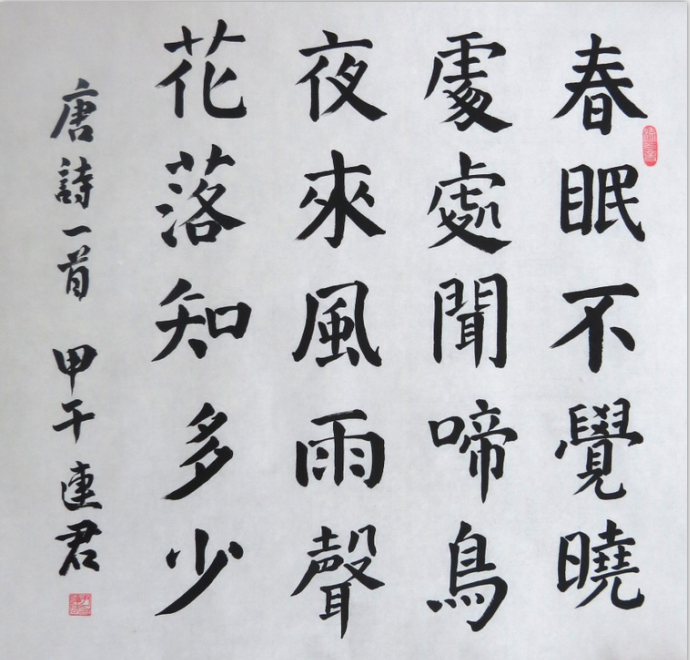 春眠不覺曉
處處聞啼鳥
夜來風雨聲
花落知多少
唐詩一首 甲午 連君